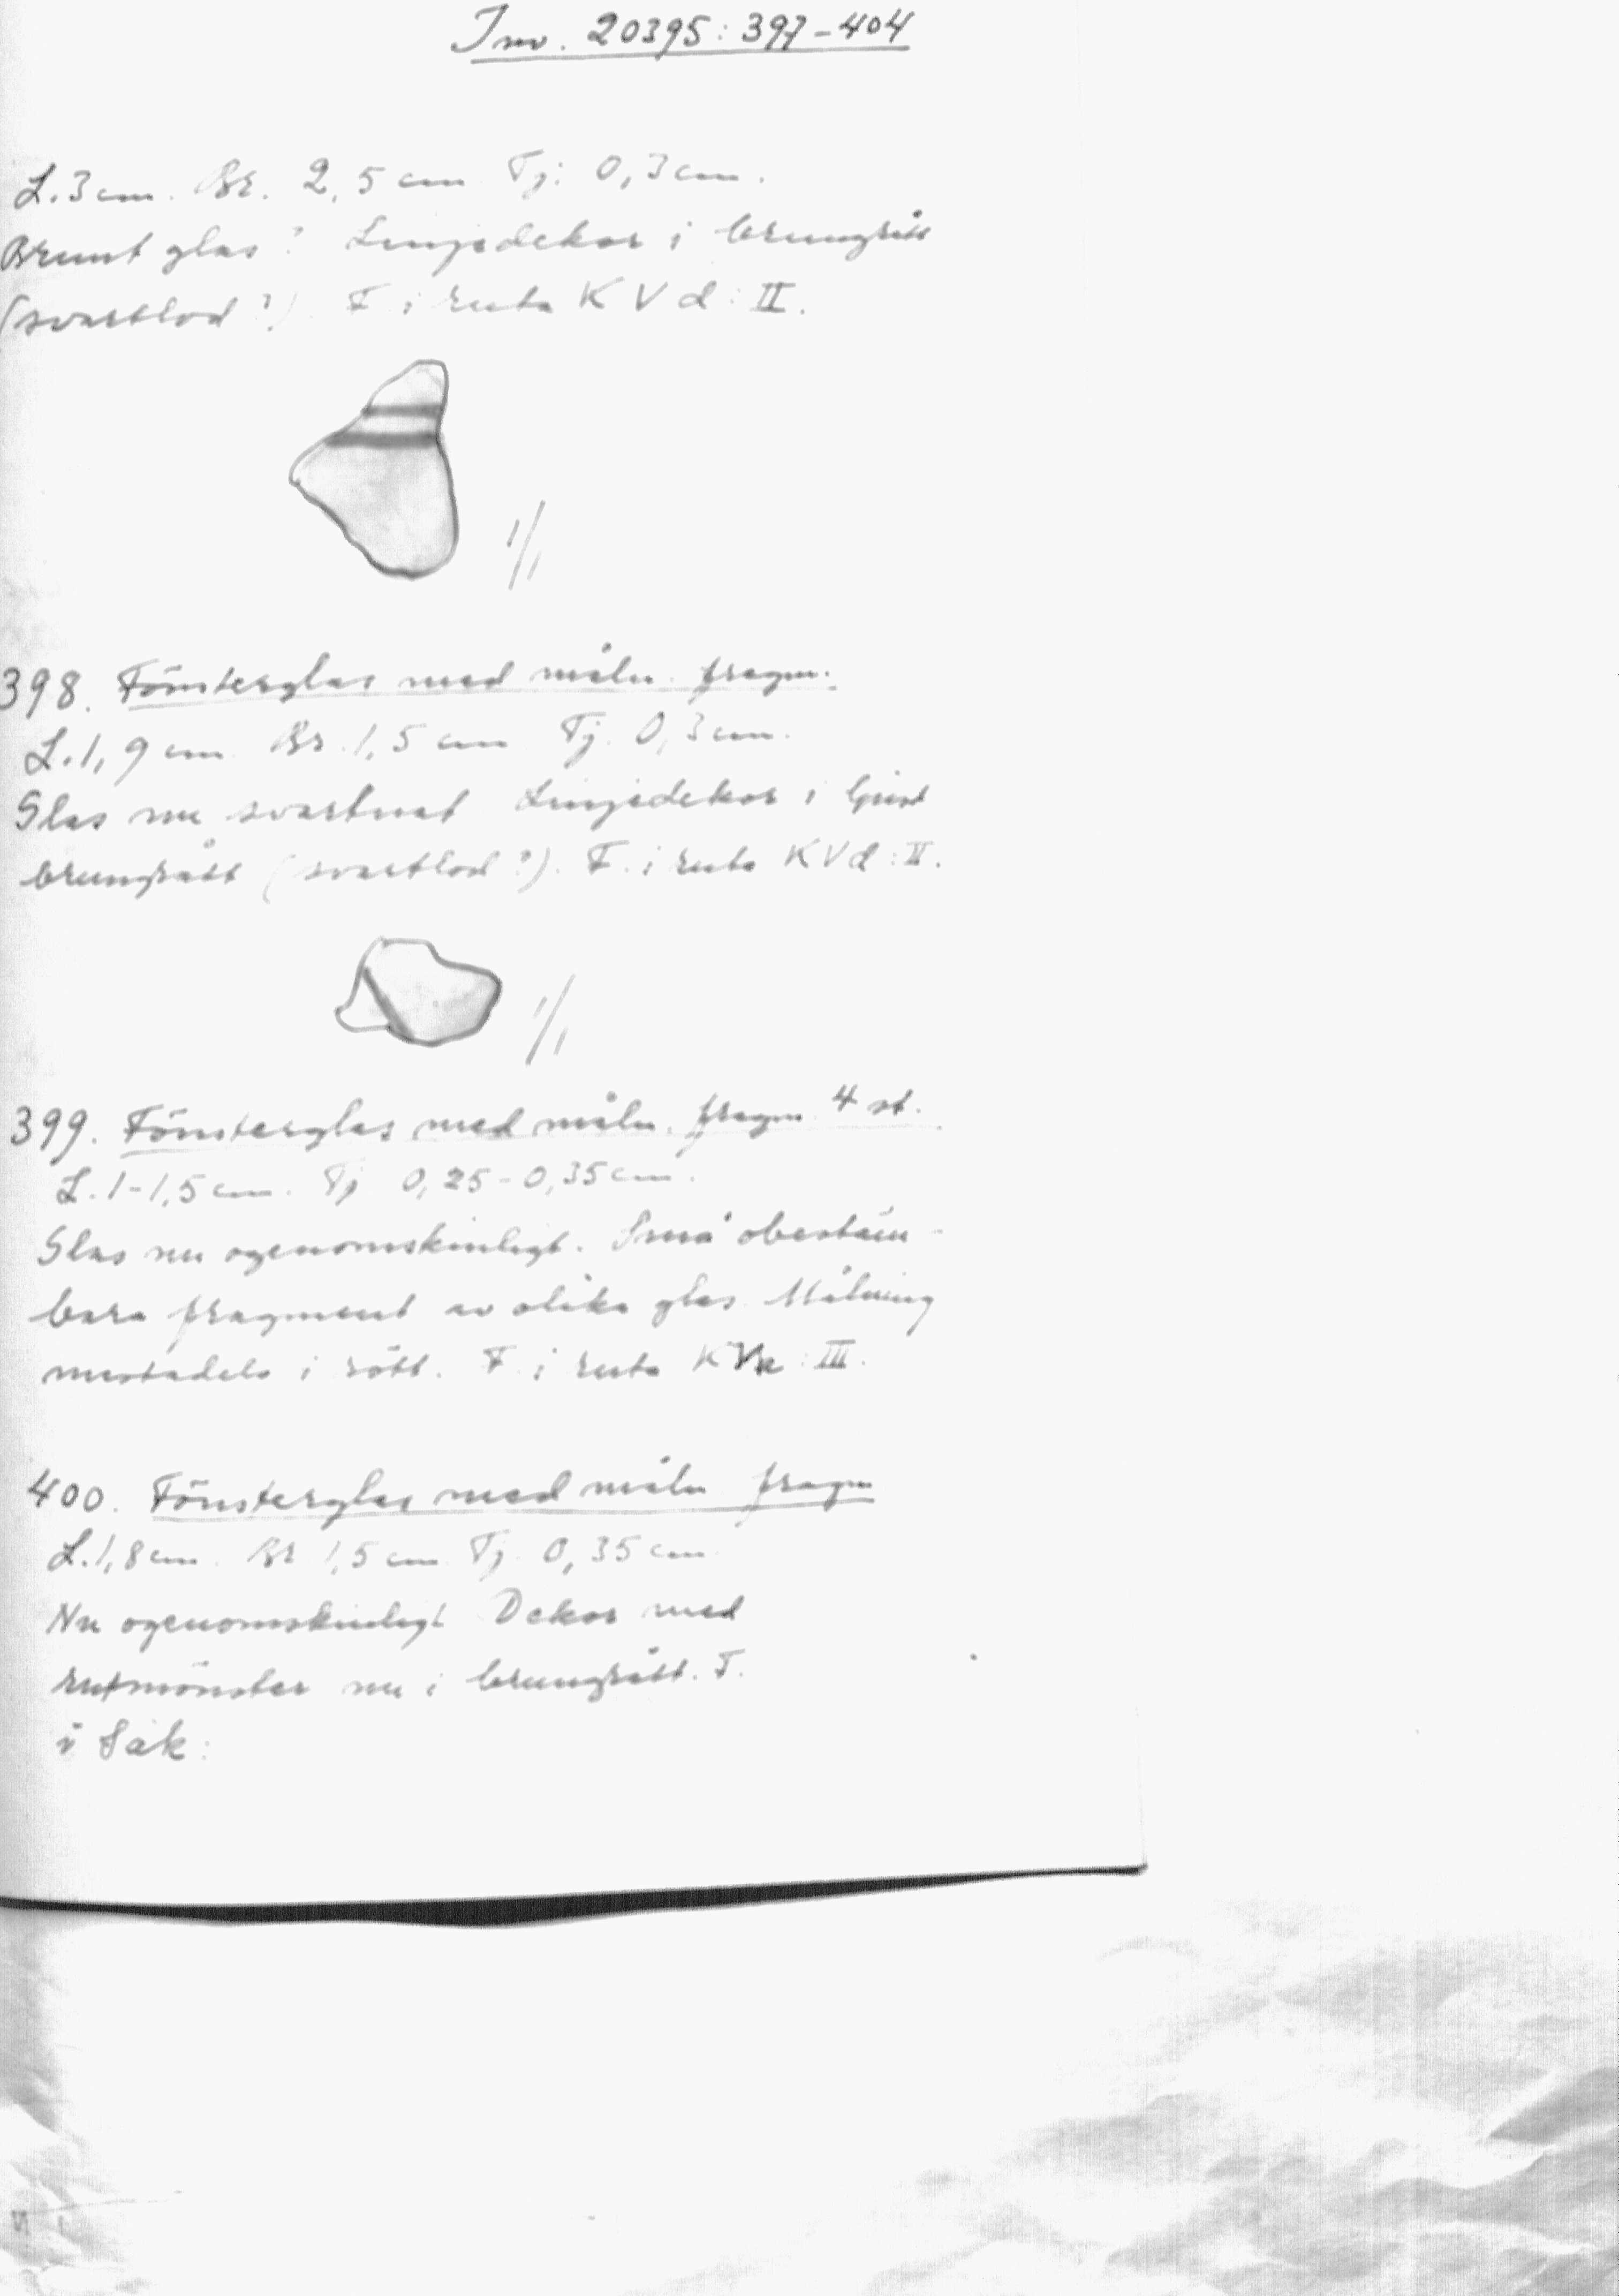 Inv. 20395: 397-404
L. 3 cm. Br. 2,5 cm Tj: 0,3 cm.
Brunt glas? Linjedekor i brungrått
(svartlod?) F. i ruta K V d: II.
1/1
398. Fönsterglas med måln. fragm.
L. 1,9 cm. Br. 1,5 cm Tj. 0,3 cm.
Glas nu svartnat Linjedekor i
brungrått (svartlod?). F. i ruta K V d: II.
1/1
399. Fönsterglas med måln. fragm 4 st.
L. 1-1,5 cm. Tj 0,25-0,35 cm.
Glas nu ogenomskinligt. Små obestäm-
bara fragment av olika glas. Målning
mestadels i rött. F. i ruta : III.
400. Fönsterglas med måln fragm
L. 1,8 cm. Br 1,5 cm Tj. 0,35 cm
Nu ogenomskinligt Dekor med
rutmönster nu i brungrått. F.
i Sak: